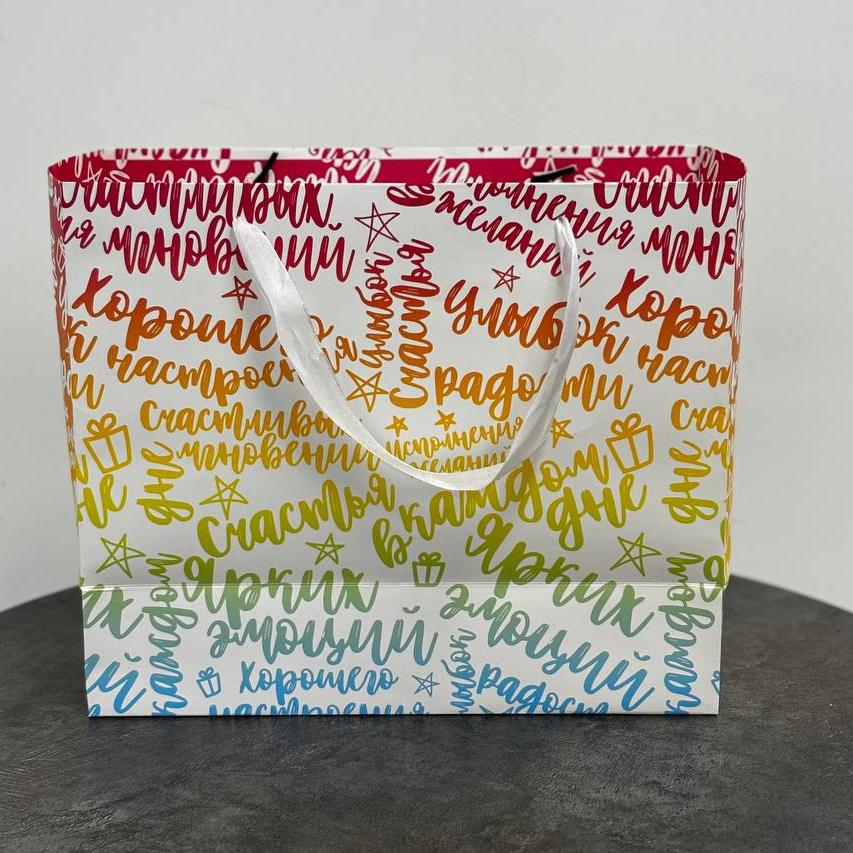 Счастливых
мгновений
в
исполнения
желаний
мгно
улыбок
Счастья
Хорошего
настроения
улыбок
радости
Счастливых
мгновений
исполнения
желаний
дне
Счастья
в каждом
дне
дне
ярких
эмоций
каждом
Хорошего
настроения
ярких
эмоций
каждом
улыбок
радости